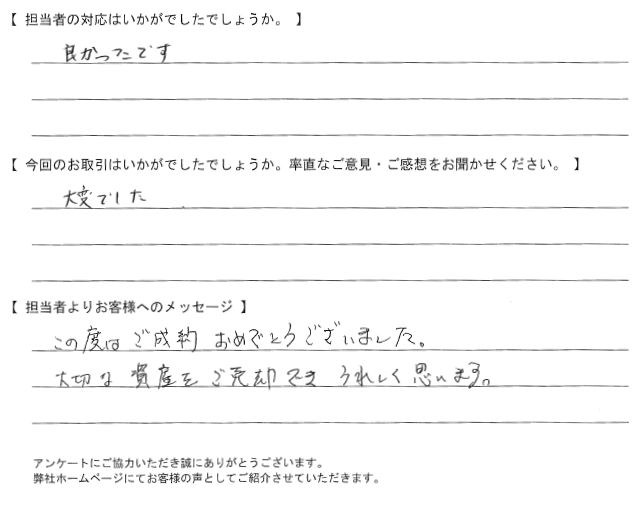 【 担当者の対応はいかがでしたでしょうか。 】
良かったです
【 今回のお取引はいかがでしたでしょうか。率直なご意見・ご感想をお聞かせください。 】
大変でした
【 担当者よりお客様へのメッセージ 】
この度は ご成約 おめでとうございました。
大切な 資産を ご売却でき うれしく思います。
アンケートにご協力いただき誠にありがとうございます。
弊社ホームページにてお客様の声としてご紹介させていただきます。